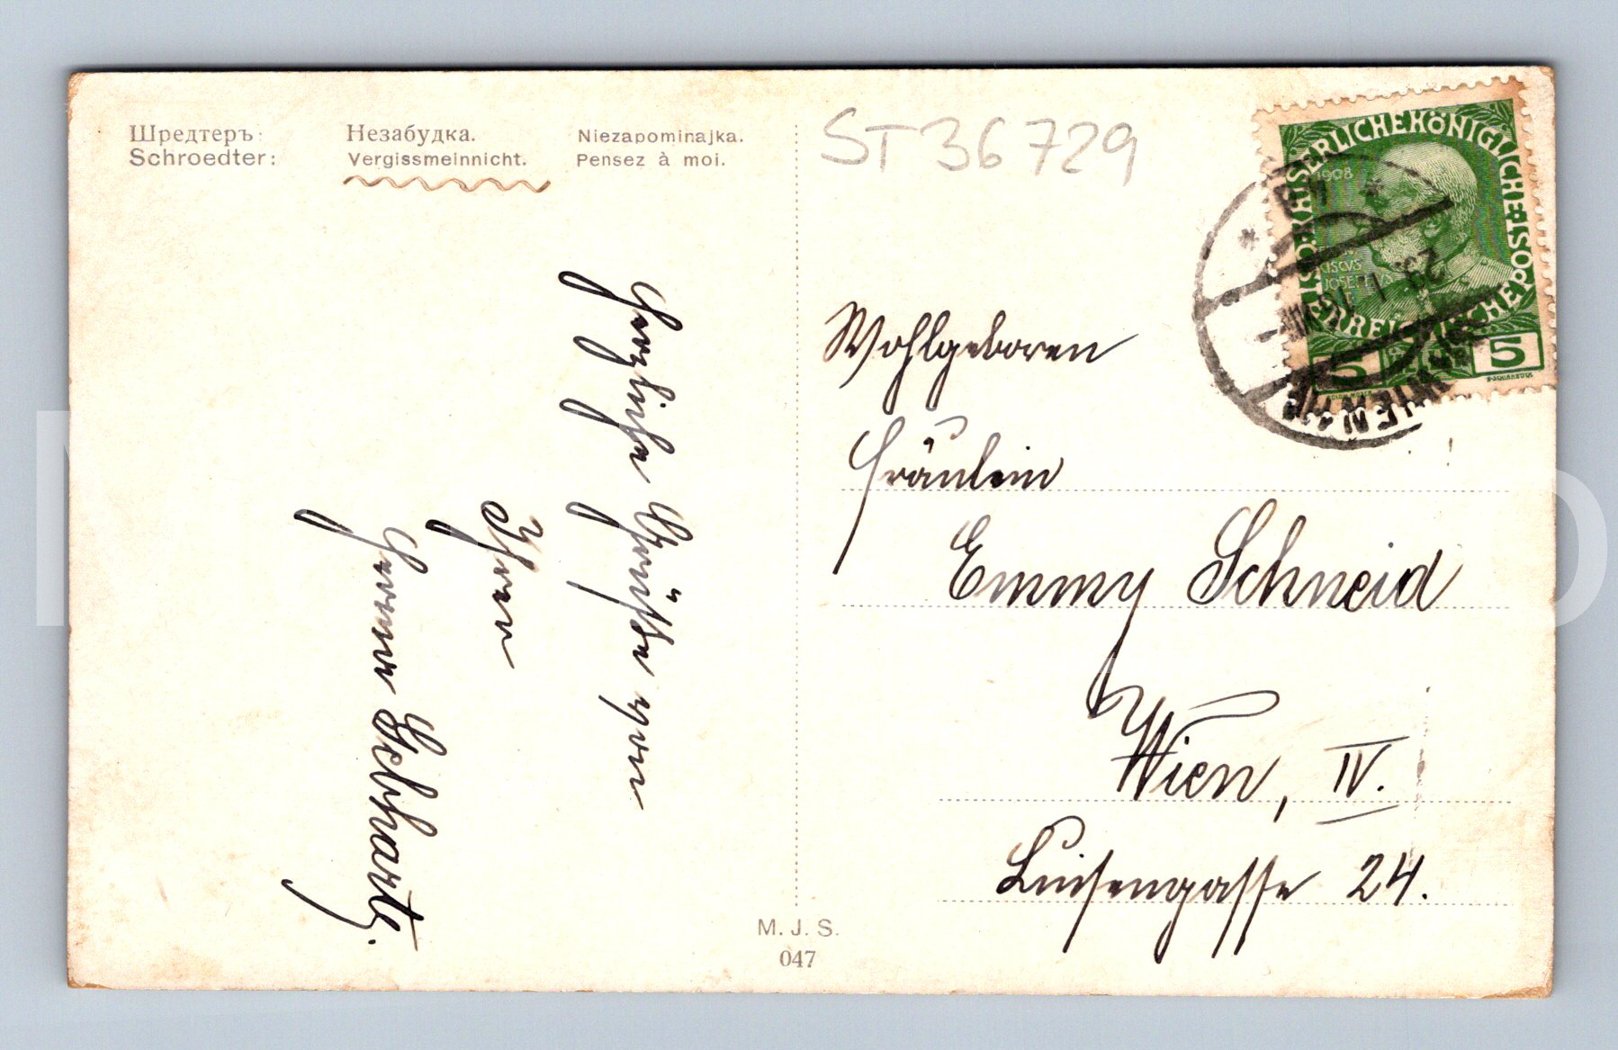 Шредтеръ:
Schroedter:
Незабудка.
Vergissmeinnicht.
Niezapominajka.
Pensez à moi.
ST 36 729
KAISERLICHE KÖNIGLICHE
1908
5 5
WIEN
Herzliche Grüße von
Ihrer
Gebhartz.
Wohlgeboren
Fräulein
Emmy Schneid
Wien, IV.
Luisengasse 24.
M. J. S.
047